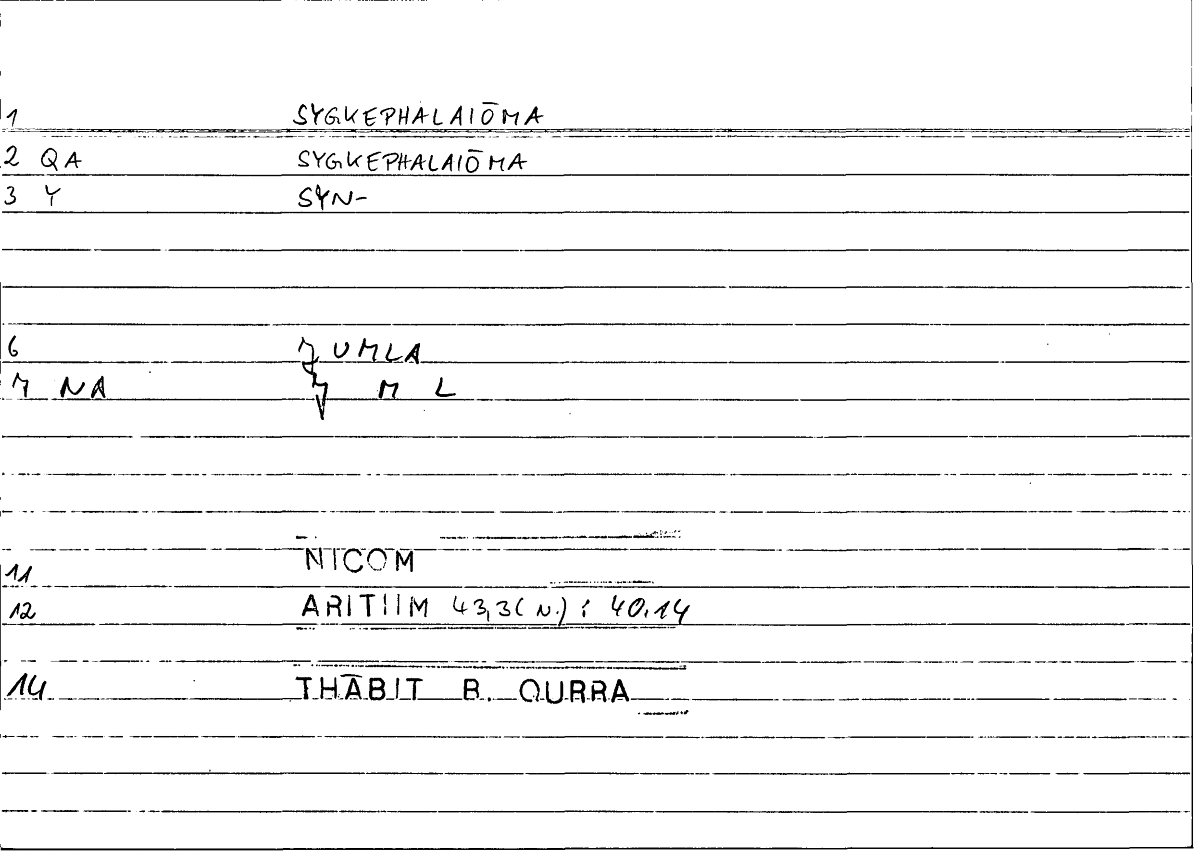 1 SYGKEPHALAIŌMA
2 QA SYGKEPHALAIŌMA
3 Y SYN-
6 ǦUMLA
7 NA Ǧ M L
11 NICOM
12 ARITHM 43,3(N.) : 40.14
14 THĀBIT B. QURRA